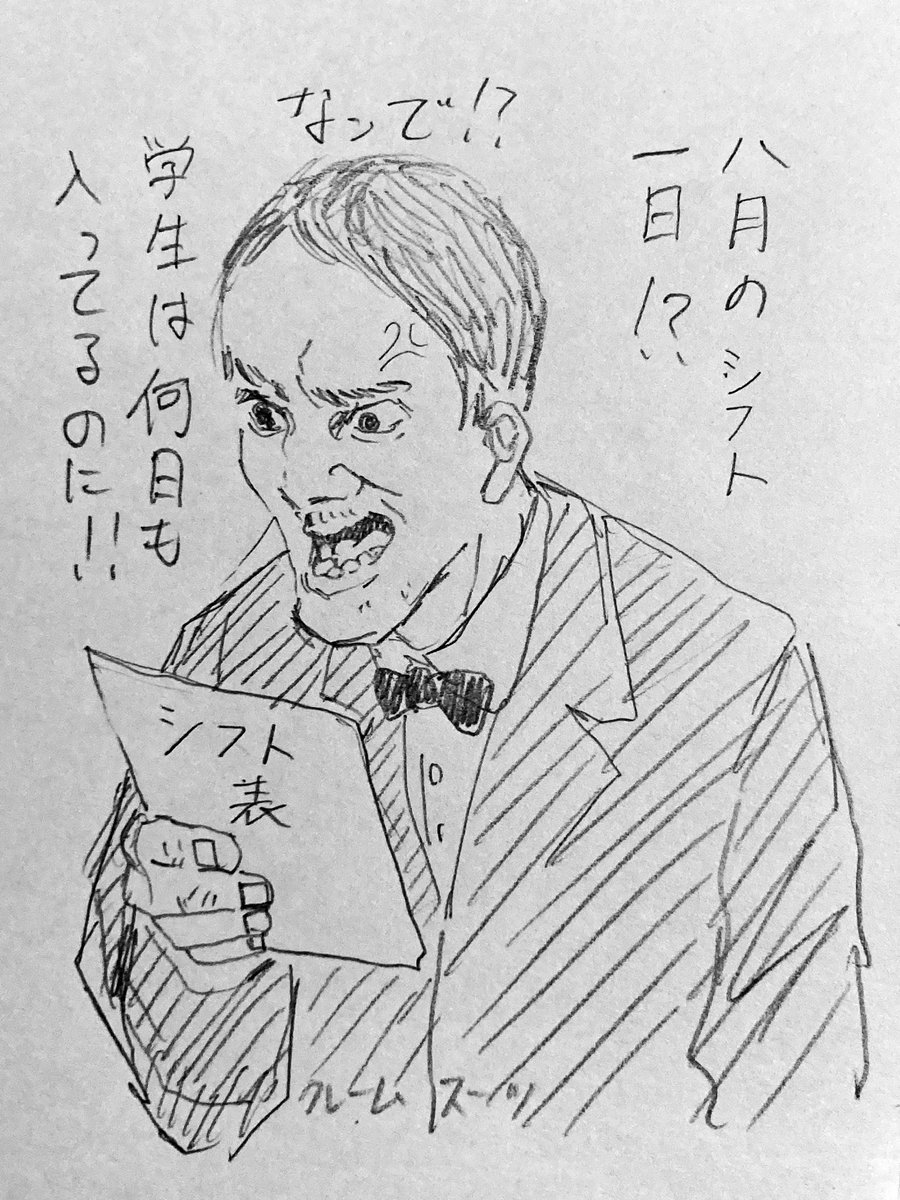 なんで!?
八月のシフト
一日!?
学生は何日も
入ってるのに!!
シフト
表
クレーム スーツ